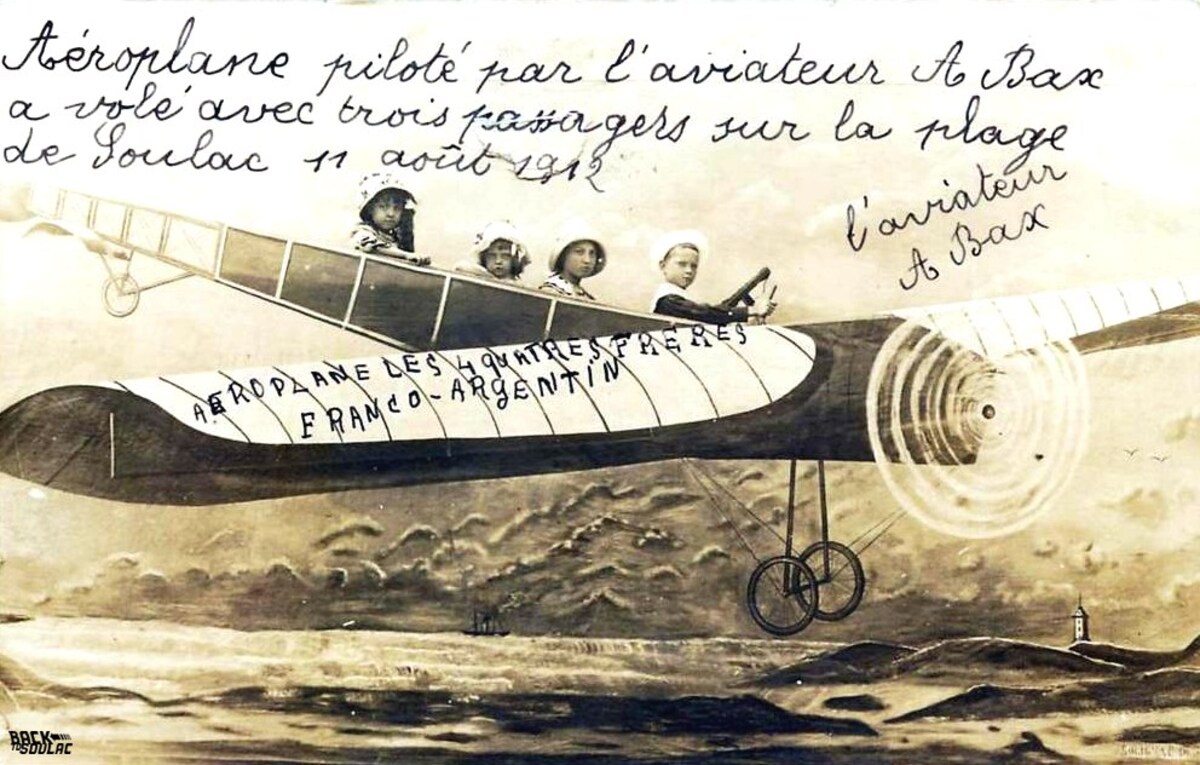 Aéroplane piloté par l'aviateur A Bax
a volé avec trois passagers sur la plage
de Soulac 11 août 1912
l'aviateur
A Bax
AEROPLANE LES 4 QUATRES FRERES
FRANCO-ARGENTIN
BACK
TO SOULAC